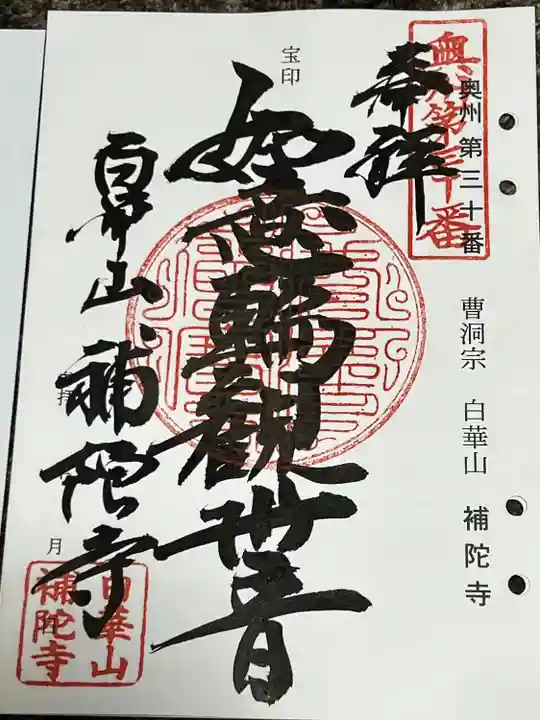 奥州第三十番
奥州 第三十番
曹洞宗 白華山 補陀寺
奉拝
宝印
如意輪観世音
白華山 補陀寺
拝
月
白華山
補陀寺